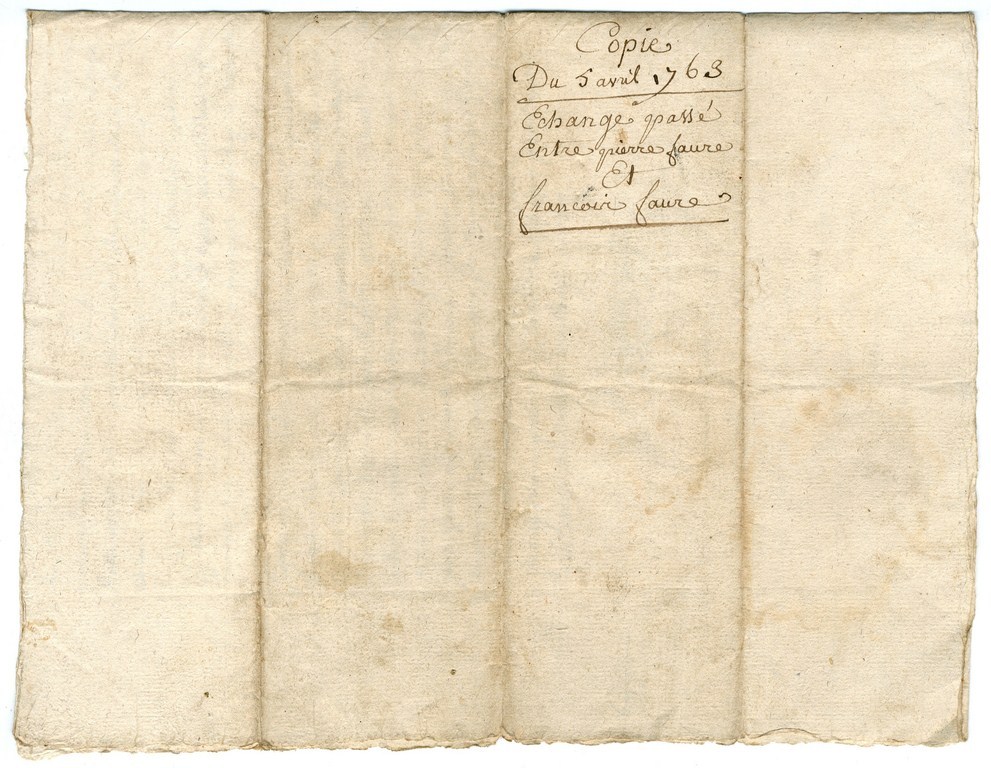 Copie
Du 5 avril 1763
Echange passé
Entre pierre faure
Et
francois faure